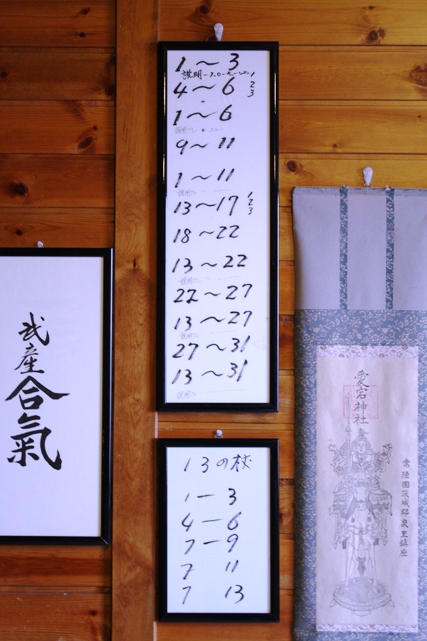 武産合氣
1〜3
説明
4〜6 1 2 3
1〜6
9〜11
1〜11
13〜17 1 2 3
18〜22
13〜22
22〜27
13〜27
27〜31
13〜31
13の杖
1ー3
4ー6
7ー9
7 11
7 13
愛宕神社
常陸國茨城郡泉里鎮座